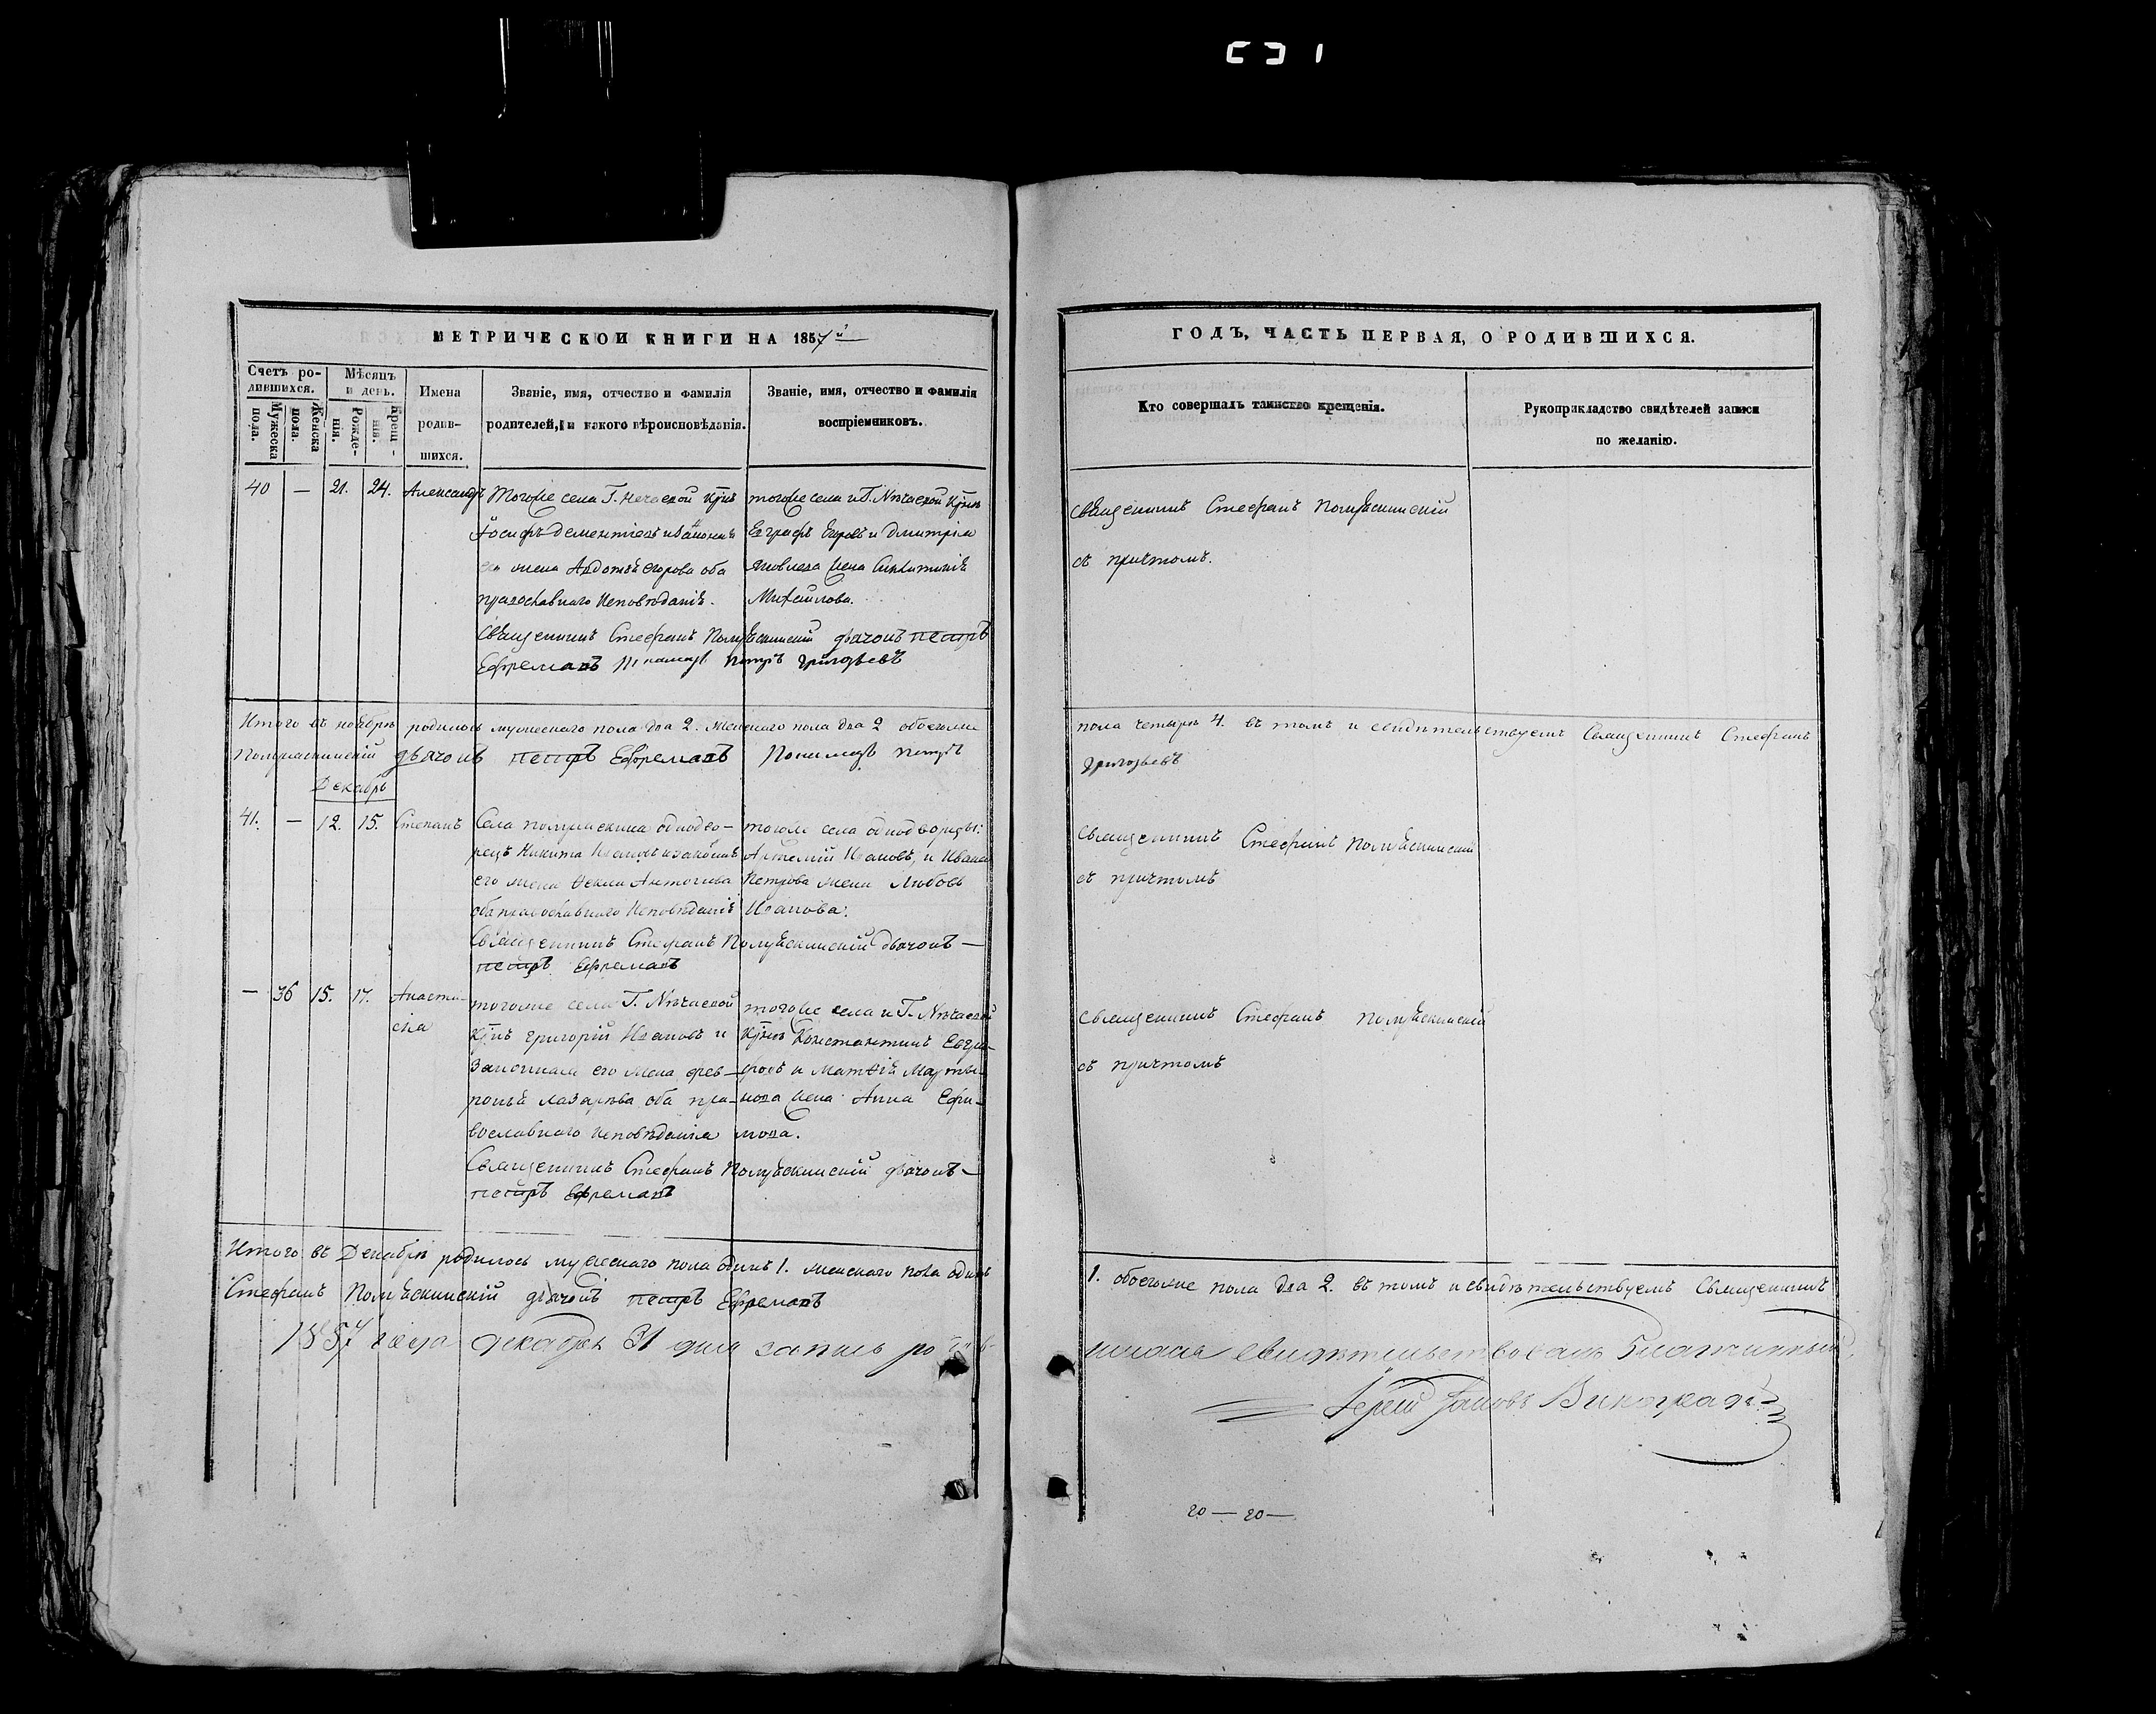 МЕТРИЧЕСКОЙ КНИГИ НА 1857й
Счетъ ро-
дившихся.
Мужеска пола.
Женска пола.
Мѣсяцъ и день.
Рожде-
нія.
Крещ-
нія.
Имена
родив-
шихся.
Званіе, имя, отчество и фамилія
родителей, и какого вѣроисповѣданія.
Званіе, имя, отчество и фамилія
воспріемниковъ.
40 — 21. 24. Александръ
Тогоже села Г. Нечаевой
Іосифъ Дементіевъ и законная
его жена Авдотья Егорова оба
православнаго исповѣданія.
тогоже села и Г. Нѣчаевой
Евграфъ и Дмитрія
Яковлева жена
Михайлова.
Священникъ Стефанъ Полуяскинскій дьячокъ Петръ
Ефремовъ Пономарь Петръ Григорьевъ
Итого въ ноябрѣ родилось мужескаго пола два 2. женскаго пола два 2 обоегоже
Полуяскинскій дьячокъ Петръ Ефремовъ Пономарь Петръ
Декабрь
41. — 12. 15. Степанъ
Села однодво-
рецъ Никита Ивановъ и законная
его жена Ѳекла Антонова
оба православнаго исповѣданія
тогоже села однодворцы:
Артемій Ивановъ, и Ивана
Петрова жена Любовь
Иванова.
Священникъ Стефанъ Полуяскинскій дьячокъ —
Петръ Ефремовъ
— 36 15. 17. Анаста-
сіа
тогоже села Г. Нѣчаевой
Григорій Ивановъ и
Законная его жена Фев-
ронья Лазарева оба пра-
вославнаго исповѣданія
тогоже села и Г. Нѣчаевой
Константинъ Евгра-
фовъ и Матѳія Марты-
нова жена Анна Ефи-
мова.
Священникъ Стефанъ Полуяскинскій дьячокъ —
Петръ Ефремовъ
Итого въ Декабрѣ родилось мужескаго пола одинъ 1. женскаго пола одинъ
Стефанъ Полуяскинскій дьячокъ Петръ Ефремовъ
1857 года декабря 31 дня запись родив-
ГОДЪ, ЧАСТЬ ПЕРВАЯ, О РОДИВШИХСЯ.
Кто совершалъ таинство крещенія.
Рукоприкладство свидѣтелей записи
по желанію.
Священникъ Стефанъ Полуяскинскій
съ причтомъ.
пола четыре 4. въ томъ и свидѣтельствуемъ Священникъ Стефанъ
Григорьевъ
Священникъ Стефанъ Полуяскинскій
съ причтомъ
Священникъ Стефанъ Полуяскинскій
съ причтомъ
1. обоегоже пола два 2. въ томъ и свидѣтельствуемъ Священникъ
шихся свидѣтельствовалъ Благочинный,
Іерей Іаковъ Виноградо
20 — 20 —